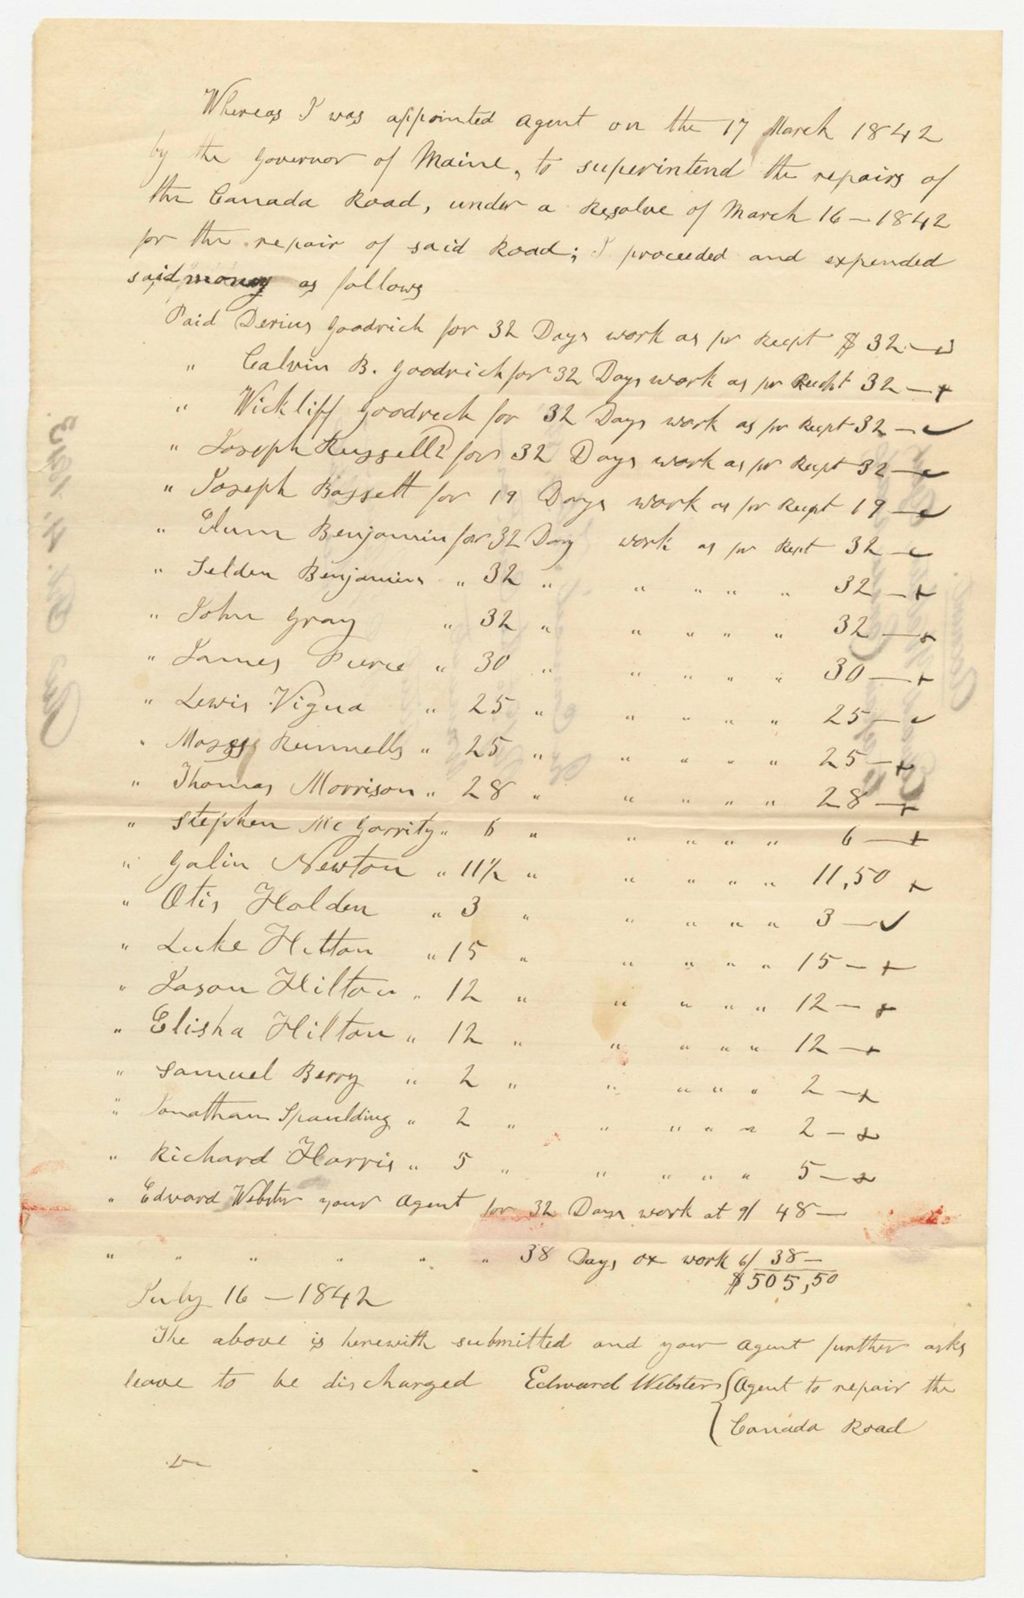 Whereas I was appointed agent on the 17 March 1842
by the Governor of Maine, to superintend the repairs of
the Canada Road, under a Resolve of March 16 - 1842
for the repair of said Road; I proceeded and expended
said money as follows
Paid Derius Goodrich for 32 Days work as pr Recipt $ 32 —
" Calvin B. Goodrich for 32 Days work as pr Recipt 32 — +
" Wickliff Goodrech for 32 Days work as pr Recipt 32 — ✓
" Joseph Russell 2 for 32 Days work as pr Recipt 32 — ✓
" Joseph Bassett for 19 Days work as pr Recipt 19 — ✓
" Elum Benjamin for 32 Day work as pr Rept 32 — ✓
" Selden Benjamin " 32 " " " " " 32 — +
" John Gray " 32 " " " " " 32 — +
" James Pierce " 30 " " " " " 30 — +
" Lewis Vigue " 25 " " " " " 25 — ✓
" Moses Runnells " 25 " " " " " 25 — +
" Thomas Morrison " 28 " " " " " 28 — +
" Stephen Mc Garrity " 6 " " " " " 6 — +
" Galin Newton " 11½ " " " " " 11,50 +
" Otis Holden " 3 " " " " " 3 — ✓
" Luke Hilton " 15 " " " " " 15 — +
" Jason Hilton " 12 " " " " " 12 — +
" Elisha Hilton " 12 " " " " " 12 — +
" Samuel Berry " 2 " " " " " 2 — +
" Jonathan Spaulding " 2 " " " " " 2 — +
" Richard Harris " 5 " " " " " 5 — +
" Edward Webster your Agent for 32 Days work at 9/ 48 —
" " " " " " 38 Days ox work 6/ 38 —
$505,50
July 16 — 1842
The above is herewith submitted and your agent further asks
leave to be discharged Edward Webster { Agent to repair the
{ Canada Road